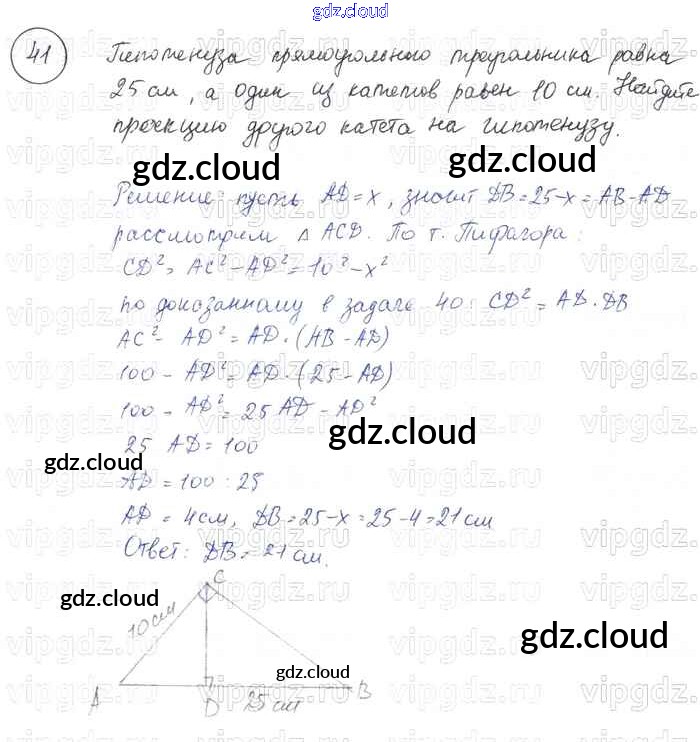 gdz.cloud
41
Гипотенуза прямоугольного треугольника равна
25 см, а один из катетов равен 10 см. Найдите
проекцию другого катета на гипотенузу.
gdz.cloud
gdz.cloud
Решение: пусть AD = x, значит DB = 25 - x = AB - AD
рассмотрим △ ACD. По т. Пифагора:
CD² = AC² - AD² = 10² - x²
по доказанному в задаче 40: CD² = AD · DB
AC² - AD² = AD · (AB - AD)
100 - AD² = AD · (25 - AD)
100 - AD² = 25 AD - AD²
gdz.cloud
25 AD = 100
gdz.cloud
AD = 100 : 25
AD = 4 см, DB = 25 - x = 25 - 4 = 21 см
Ответ: DB = 21 см.
C
gdz.cloud
10 см
gdz.cloud
gdz.cloud
A
D
25 см
B
vipgdz.ru